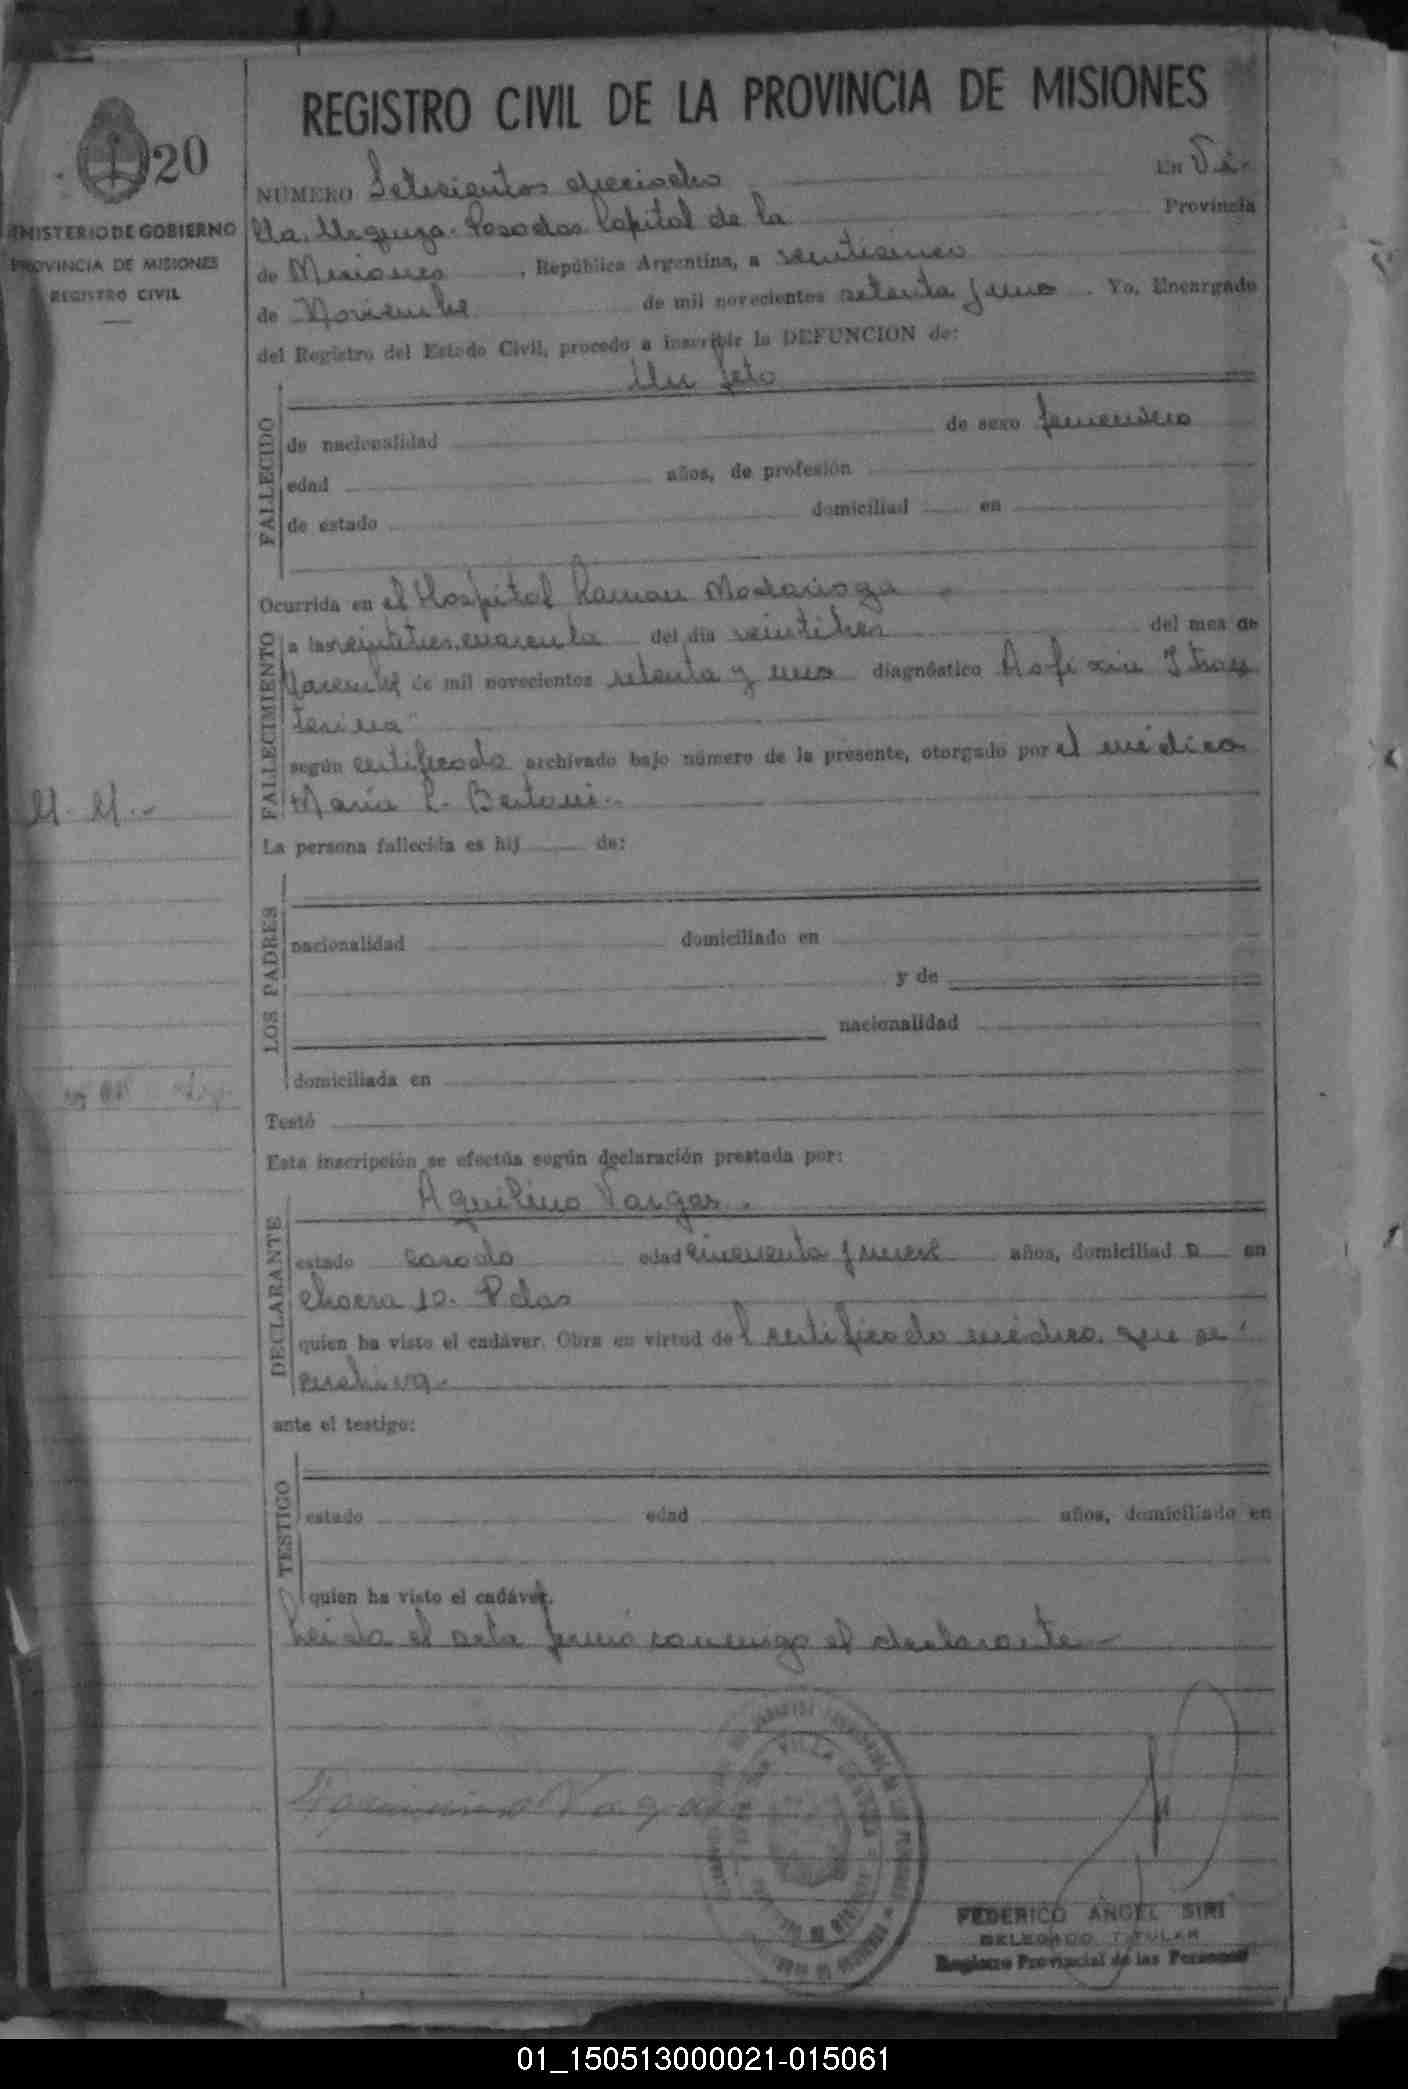 REGISTRO CIVIL DE LA PROVINCIA DE MISIONES
20
MINISTERIO DE GOBIERNO
PROVINCIA DE MISIONES
REGISTRO CIVIL
NUMERO Setecientos dieciocho En Vi-
lla Urquiza. Posadas Capital de la Provincia
de Misiones, República Argentina, a veinticinco
de Noviembre de mil novecientos setenta y uno. Yo, Encargado
del Registro del Estado Civil, procedo a inscribir la DEFUNCION de:
Un feto
FALLECIDO
de nacionalidad de sexo femenino
edad años, de profesión
de estado domiciliad en
Ocurrida en el Hospital Ramon Madariaga
FALLECIMIENTO
a las veintitres, cuarenta del día veintitres del mes de
de mil novecientos setenta y uno diagnóstico Asfixia
según certificado archivado bajo número de la presente, otorgado por el médico
Maria L. Bertoni.-
M. M.-
La persona fallecida es hij de:
LOS PADRES
nacionalidad domiciliado en
y de
nacionalidad
domiciliada en
Testó
Esta inscripción se efectúa según declaración prestada por:
Aquilino Vargas.
DECLARANTE
estado casado edad cincuenta y nueve años, domiciliad o en
chacra 10. Pdas
quien ha visto el cadáver. Obra en virtud del certificado médico, que se
archiva.-
ante el testigo:
TESTIGO
estado edad años, domiciliado en
quien ha visto el cadáver.
Leida el acta firmó conmigo el declarante-
FEDERICO ANGEL SIRI
DELEGADO TITULAR
Registro Provincial de las Personas
01_150513000021-015061